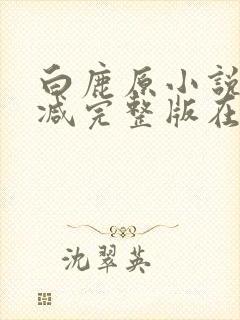 白鹿原小説
减完整版在
沈翠英